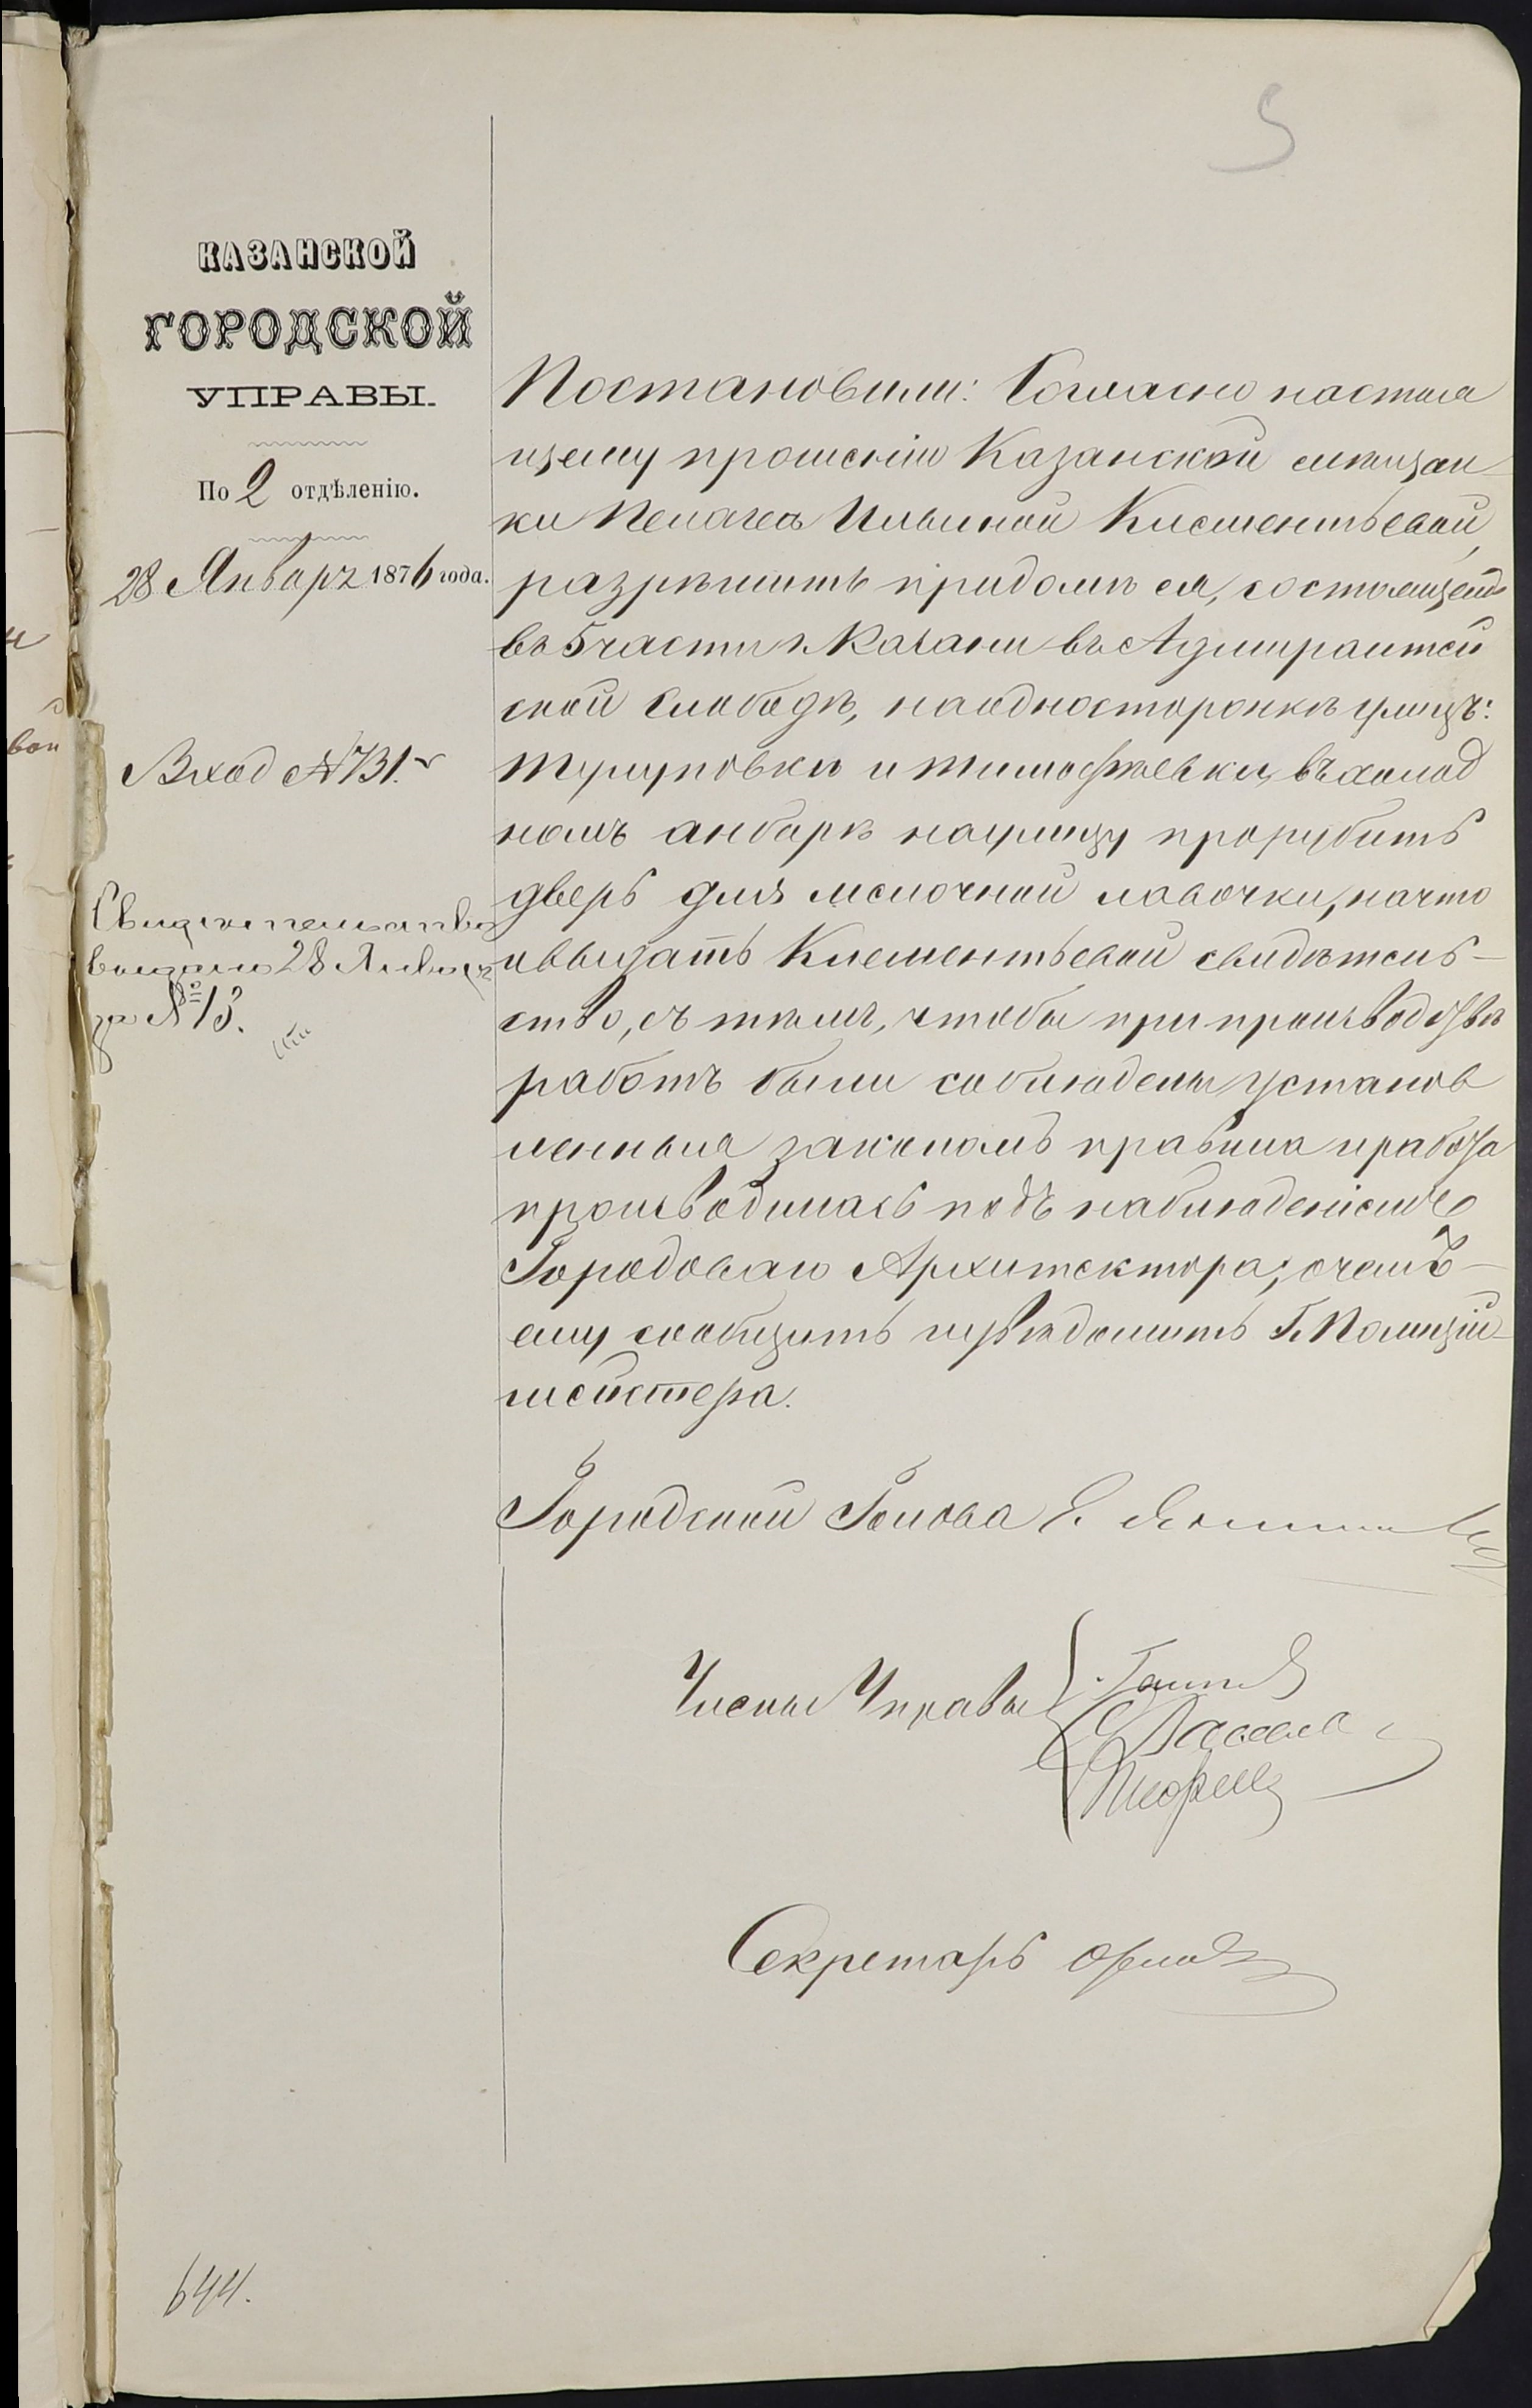 5
КАЗАНСКОЙ
ГОРОДСКОЙ
УПРАВЫ.
По 2 отдѣленію.
28 Январь 1876 года.
Вход №731.
Свидѣтельство
выдано 28 Января
за №13.
Постановили: Согласно настоя
щему прошенію Казанской мѣщан-
ки Пелагеѣ Ильиной Клементьевой,
разрѣшить придомѣ ея, состоящемъ
въ 5 части г. Казани въ Адмиралтей
ской слободѣ, наодносторонкѣ улицъ:
и въ холод
номъ анбарѣ наулицу прорубить
дверь для мелочной лавочки, начто
ивыдать Клементьевой свидѣтель-
ство, съ тѣмъ, чтобы при производствѣ
работъ были соблюдены установ
ленныя закономъ правила иработа
производилась подъ наблюденіемъ
Городоваго Архитектора; очемъ-
ему сообщить иувѣдомить Г. Полиций-
мейстера.
Городской Голова Е.
Члены Управы
Секретарь Орлов
644.